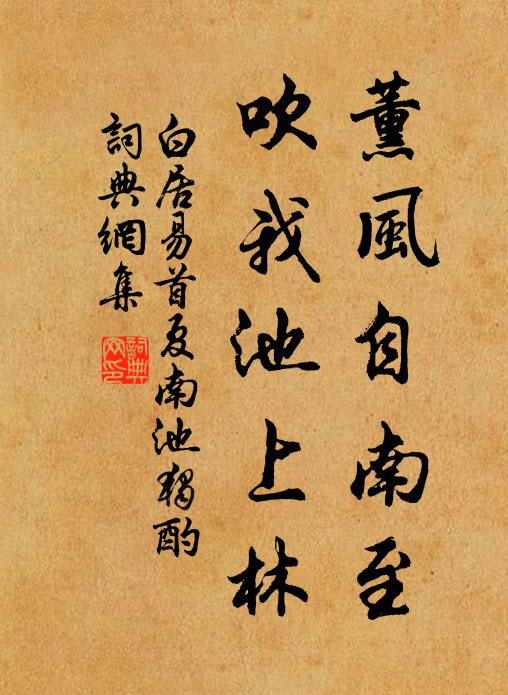 薰風自南至
吹我池上林
白居易首夏南池獨酌
詞典網集
詞典網印